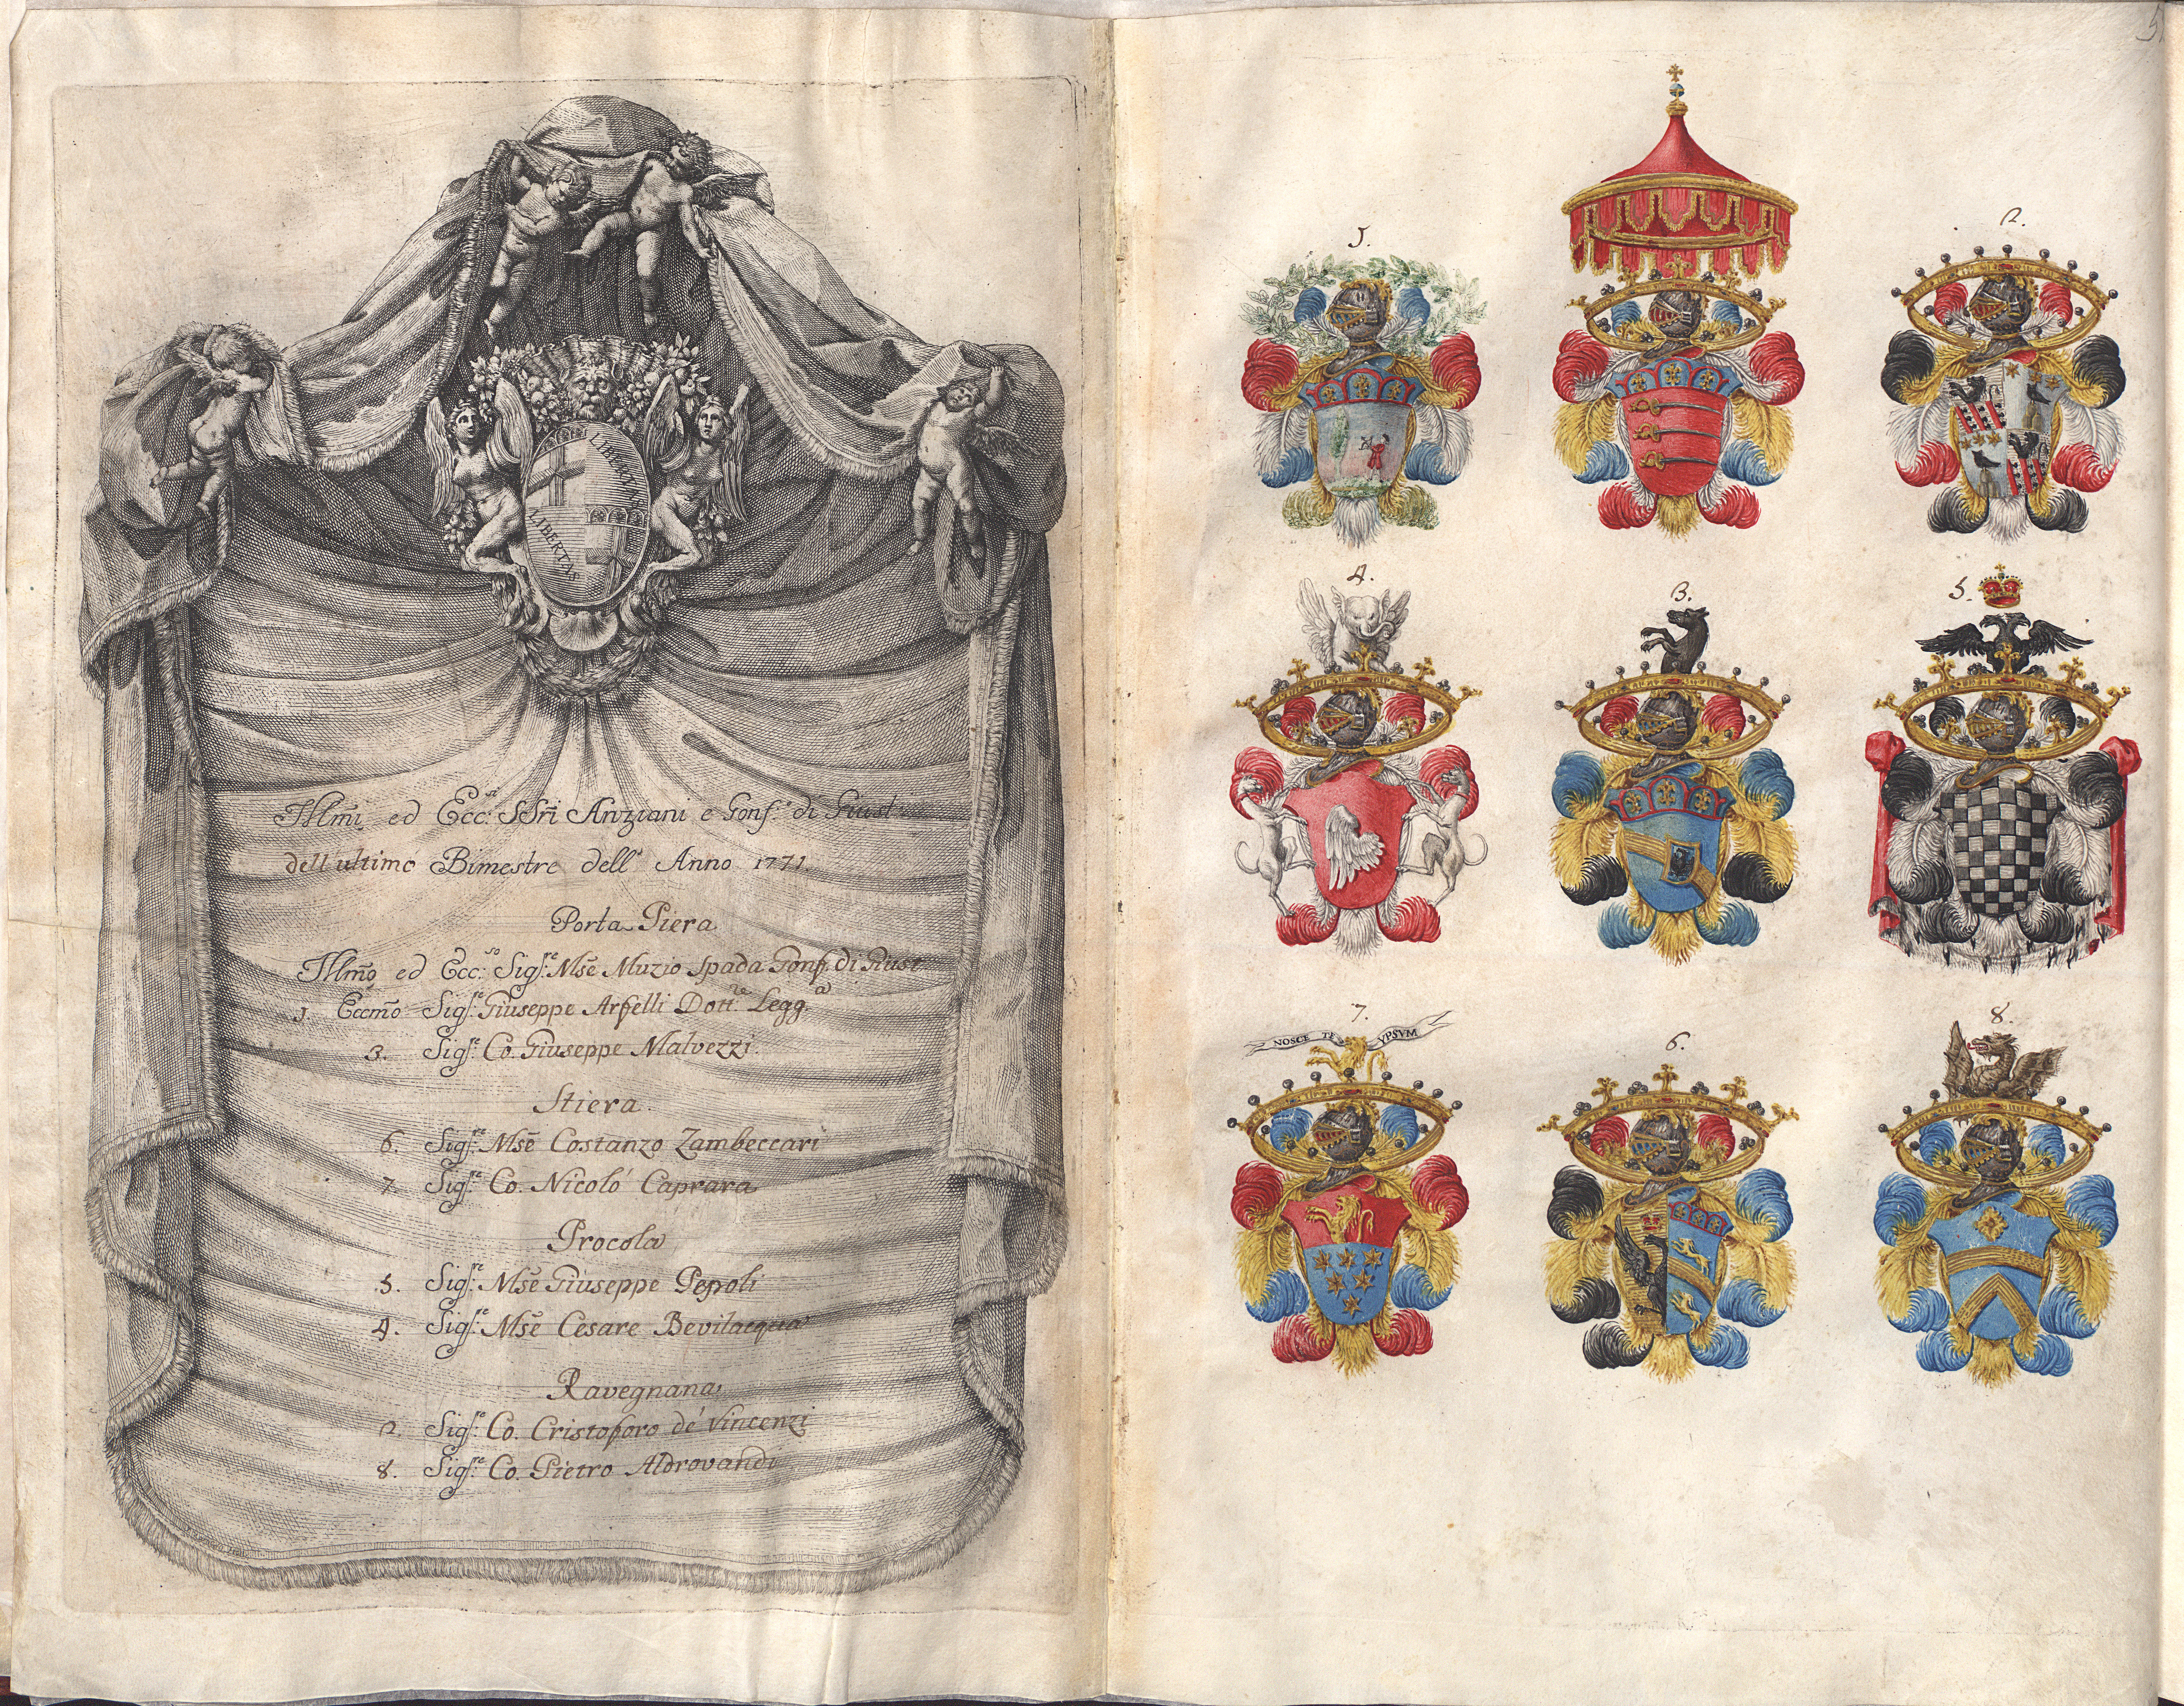 LIBERTAS
LIBERTAS
Illm̃i ed Ecc:si SSri Anziani e Gonf.ri di Giust
dell'ultimo Bimestre dell' Anno 1771.
Porta Piera
Illm̃o ed Ecc:so Sigr:e Mse Muzio Spada Gonf. di Giust
1. Eccm̃o Sigr:e Giuseppe Arfelli Dott:re Legg.a
3. Sigr:e Co. Giuseppe Malvezzi.
Stiera.
6. Sigr:e Mse Costanzo Zambeccari
7. Sigr:e Co. Nicoló Caprara
Procola
5. Sigr:e Mse Giuseppe Pepoli
4. Sigr:e Mse Cesare Bevilacqua
Ravegnana
2. Sigr:e Co. Cristoforo dé Vincenzi
8. Sigr:e Co. Pietro Aldrovandi
1.
2.
4.
3.
5.
7.
NOSCE TE YPSVM
6.
8.